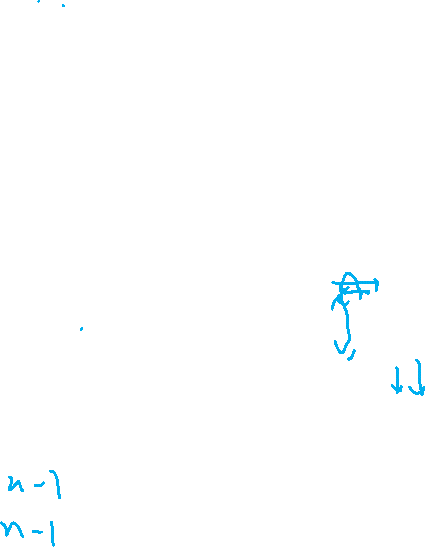 ↓↓
n-1
n-1